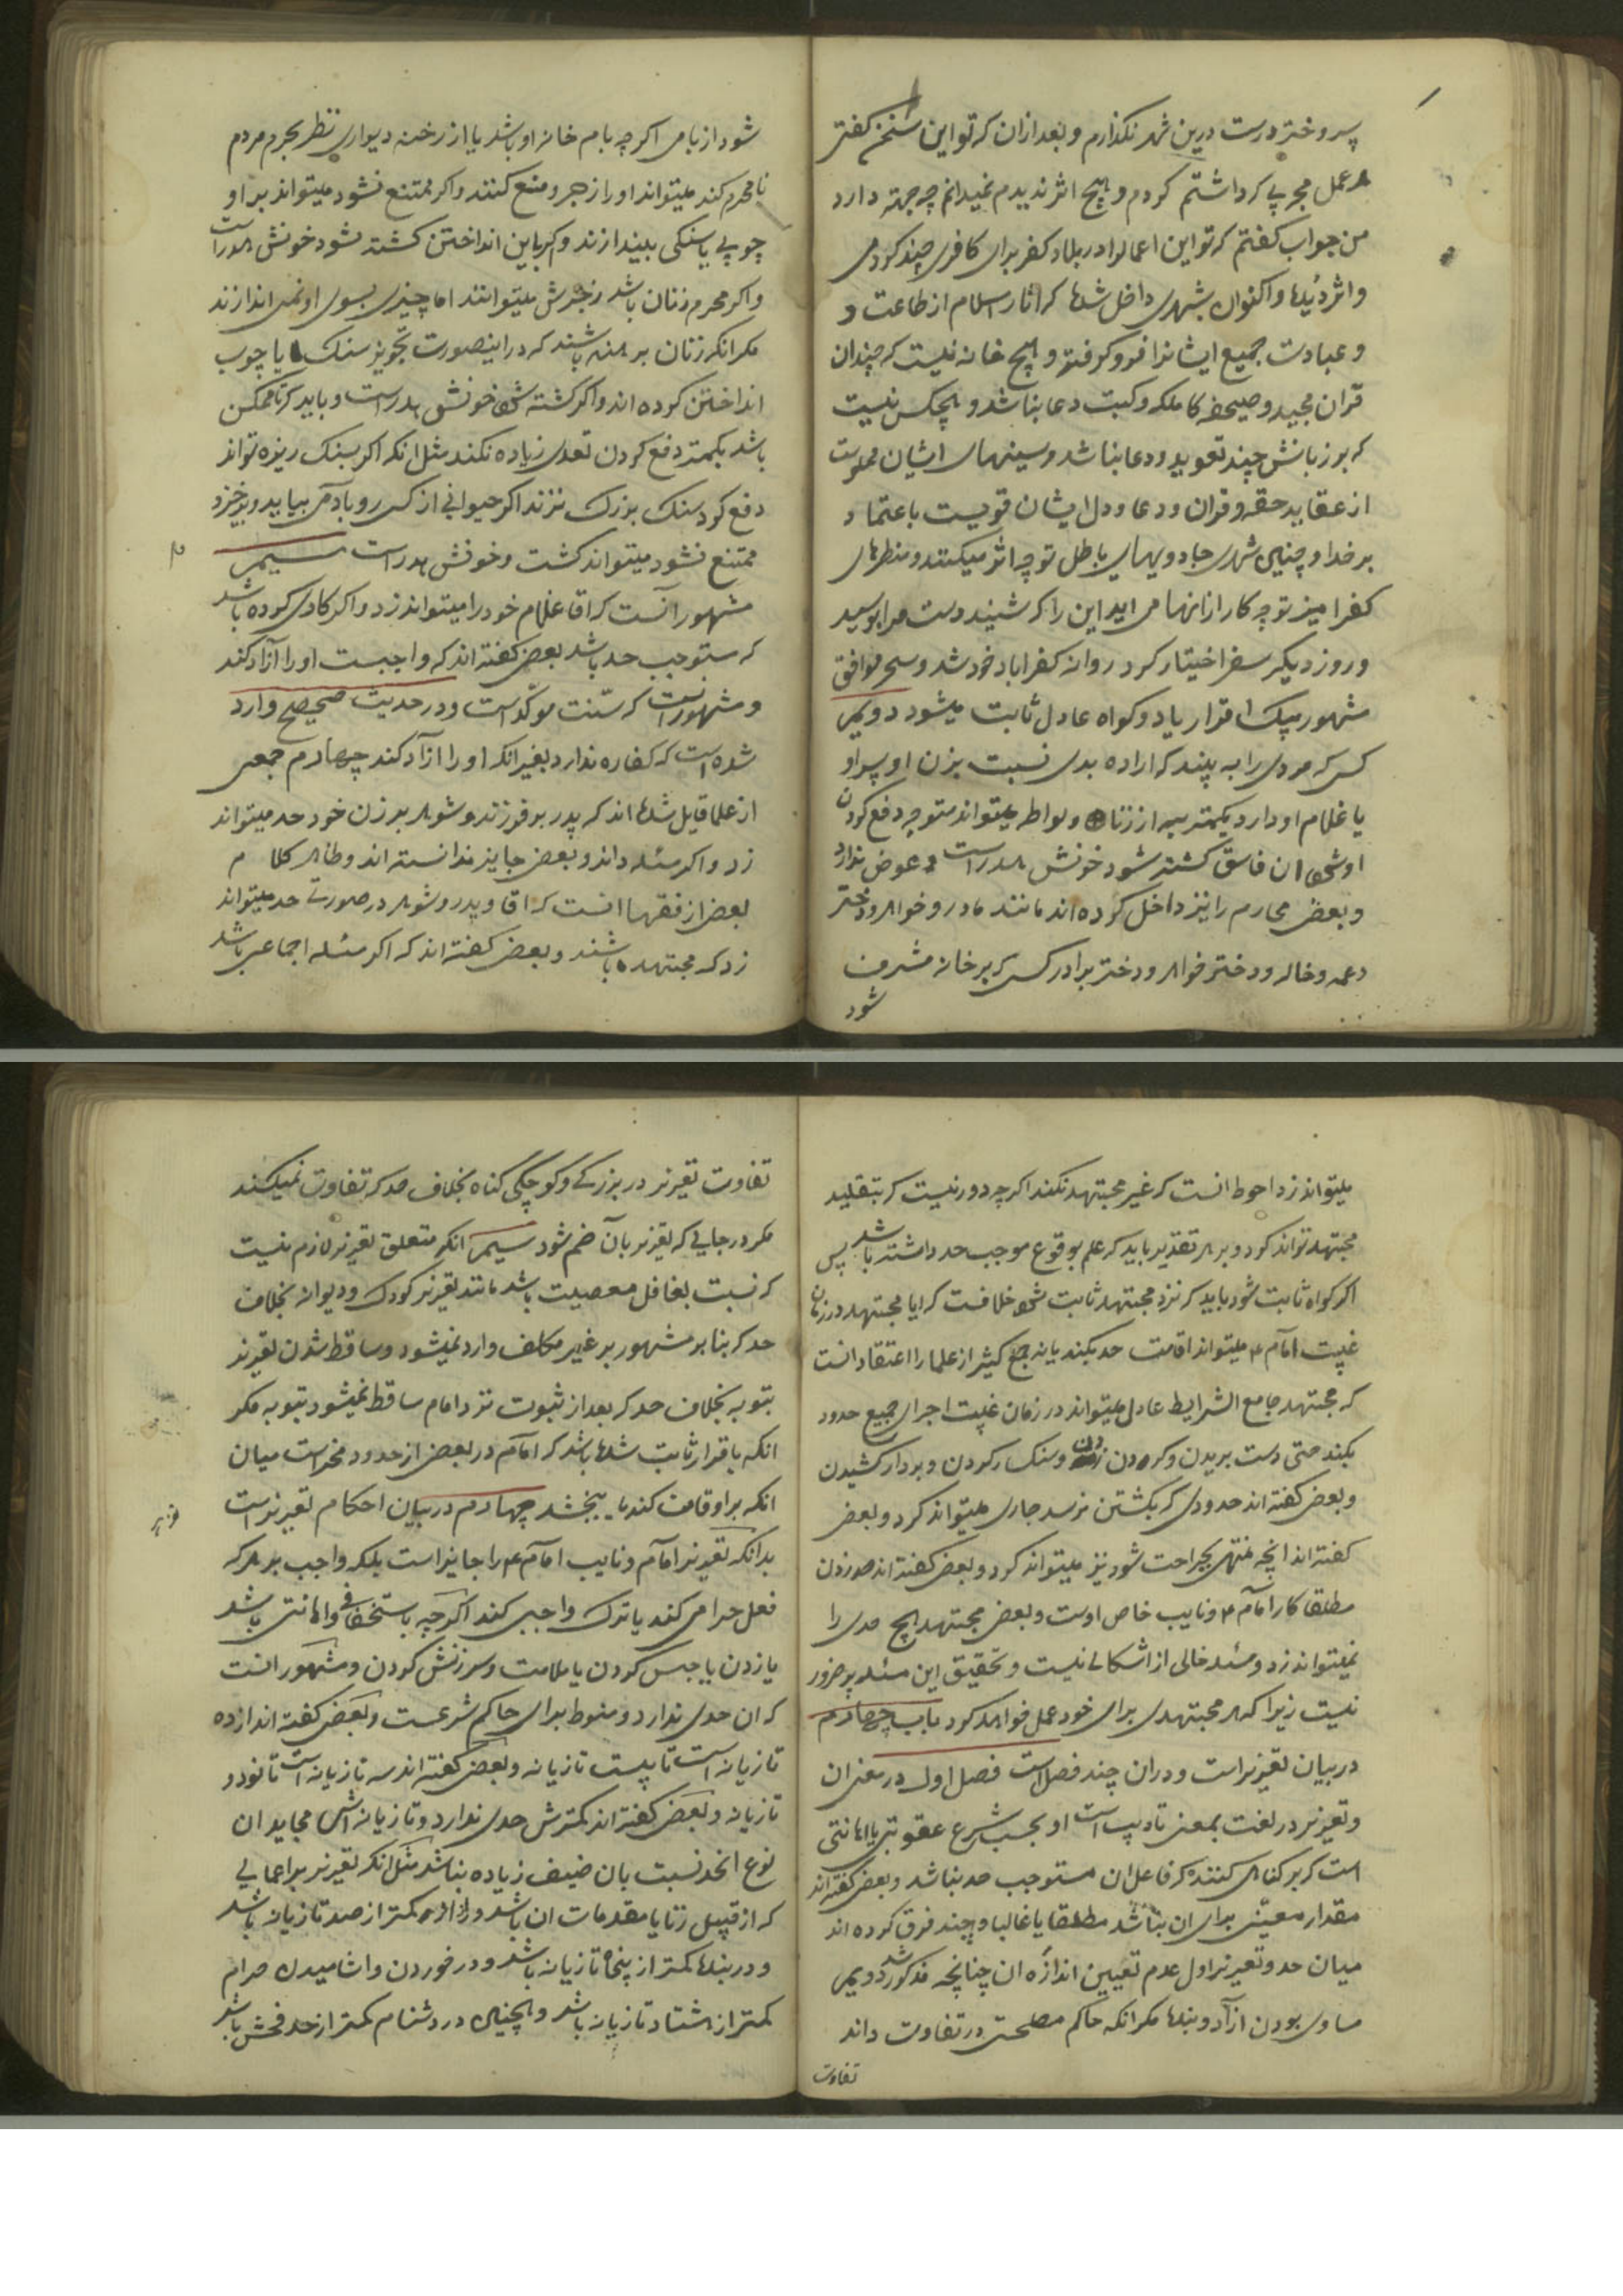 پسر و دختر درست درین شهر نگذارم و بعد ازان که تو این سخن گفتی
هر عمل مجربی که داشتم کردم و هیچ اثر ندیدم نمیدانم چه جهة دارد
من جواب گفتم که تو این اعمالرا در بلاد کفر برای کافری چند کردهٔ
و اثر دیدها و اکنون بشهری داخل شدها که اثار اسلام از طاعت و
و عبادت جمیع ایشانرا فرو گرفته و هیچ خانه نیست که چندان
قران مجید و صحیفه کامله و کتب دعا نباشد و هیچکس نیست
که بر زبانش چند تعوید و دعا نباشد و سینهای ایشان مملوست
از عقاید حقه و قران و دعا و دل ایشان قویست باعتماد
بر خدا و چنین شهری جادویهای باطل تو چه اثر میکند و منظرهای
کفر امیز تو چه کار ازانها می اید این را که شنید دست مرا بوسید
و روز دیگر سفر اختیار کرد روانه کفراباد خود شد و سحر موافق
مشهور بیک اقرار یا دو کواه عادل ثابت میشود دویم
کسی که مردی را به بیند که اراده بدی نسبت بزن او پسر او
یا غلام او دارد بکمتر از زنا و لواطه میتواند متوجه دفع کردن
او شود ان فاسق کشته شود خونش هدر است و عوض ندارد
و بعضی محارم را نیز داخل کرده اند مانند مادر و خواهر و دختر
و عمه و خاله و دختر خواهر و دختر برادر کسی که بر خانه مشرف
شود
شود از بامی اکر چه بام خانه او باشد یا از رخنه دیواری نظر بحرم مردم
نامحرم کند میتواند او را زجر و منع کنند و اکر ممتنع نشود میتواند بر او
چوبی یا سنکی بیندازند و اکر باین انداختن کشته شود خونش هدر است
و اکر محرم زنان باشد زجرش میتوانند اما چیزی بسوی او نمی اندازند
مکر انکه زنان برهنه باشند که در اینصورت تجویز سنک یا چوب
انداختن کرده اند و اکر کشته شود خونش هدر است و باید که تا ممکن
باشد بکمتر دفع کردن تعدی زیاده نکند مثل انکه اکر بسنک ریزه تواند
دفع کرد سنک بزرک نزند اکر حیوانی از کسی رو بادمی بیاید و بزجر
ممتنع نشود میتواند کشت و خونش هدر است سیم
مشهور آنست که اقا غلام خود را میتواند زد و اکر کاری کرده باشد
که مستوجب حد باشد بعضی کفته اند که واجبست او را آزاد کند
و مشهور آنست که سنت موکد است و در حدیث صحیح وارد
شده است که کفاره ندارد بغیر انکه او را ازاد کند چهارم جمعی
از علما قایل شدها اند که پدر بر فرزند و شوهر بر زن خود حد میتواند
زد و اکر مسئله داند و بعضی جایز ندانسته اند و ظاهر کلام
بعضی از فقها انست که اقا و پدر و شوهر در صورتی حد میتواند
زد که مجتهد باشند و بعضی کفته اند که اکر مسئله اجماعی باشد
میتواند زد احوط انست که غیر مجتهد نکند اکر چه دور نیست که بتقلید
مجتهد تواند کرد و بر هر تقدیر باید که علم بوقوع موجب حد داشته باشد پس
اکر کواه ثابت شود باید که نزد مجتهد ثابت شود خلافست که ایا مجتهد در زمان
غیبت امام ع میتواند اقامت حد بکند یا نه جمع کثیر از علما را اعتقاد انست
که مجتهد جامع الشرایط عادل میتواند در زمان غیبت اجرای جمیع حدود
بکند حتی دست بریدن و کردن زدن و سنکسار کردن و بردار کشیدن
و بعضی کفته اند حدودی که بکشتن نرسد جاری میتواند کرد و بعضی
کفته اند انچه منتهی بجراحت شود نیز میتواند کرد و بعضی کفته اند حد زدن
مطلقا کار امام ع و نایب خاص اوست و بعضی مجتهد هیچ حدی را
نمیتواند زد و مسئله خالی از اشکالی نیست و تحقیق این مسئله پر ضرور
نیست زیرا که هر مجتهدی برای خود عمل خواهد کرد باب چهارم
در بیان تعزیر است و دران چند فصل است فصل اول در معنی ان
و تعزیر در لغت بمعنی تادیب است و بحسب شرع عقوبتی یا اهانتی
است که بر کناهی کنند که فاعل ان مستوجب حد نباشد و بعضی کفته اند
مقدار معینی برای ان نباشد مطلقا یا غالبا و چند فرق کرده اند
میان حد و تعزیر اول عدم تعیین اندازه ان چنانچه مذکور شد دویم
مساوی بودن ازاد و بنده مکر انکه حاکم مصلحتی در تفاوت داند
تفاوت
تفاوت تعزیر در بزرکی و کوچکی کناه بخلاف حد که تفاوت نمیکند
مکر در جایی که تعزیر بآن ضم شود سیم انکه متعلق تعزیر لازم نیست
که نسبت بفاعل معصیت باشد مانند تعزیر کودک و دیوانه بخلاف
حد که بنا بر مشهور بر غیر مکلف وارد نمیشود و ساقط شدن تعزیر
بتوبه بخلاف حد که بعد از ثبوت نزد امام ساقط نمیشود بتوبه مکر
انکه باقرار ثابت شدها باشد که امام در بعضی از حدود مخیر است میان
انکه بر او قامت کند یا ببخشد چهارم در بیان احکام تعزیر است
بدانکه تعزیر امام و نایب امام ع را جایز است بلکه واجب بر هر که
فعل حرامی کند یا ترک واجبی کند اکر چه باستخفافی و اهانتی باشد
یا زدن یا حبس کردن یا ملامت و سرزنش کردن و مشهور انست
که ان حدی ندارد و منوط برای حاکم شرعست و بعضی کفته اند از ده
تازیانه است تا بیست تازیانه و بعضی کفته اند سه تازیانه است تا نود و
تازیانه و بعضی کفته اند کمترش حدی ندارد و تازیانه اش میباید ان
نوع اخذ نسبت بان ضعیف زیاده نباشد مثل انکه تعزیر بر اعمالی
که از قبیل زنا یا مقدمات ان باشد در ازاد کمتر از صد تازیانه باشد
و در بندها کمتر از پنجاه تازیانه باشد و در خوردن و اشامیدن حرام
کمتر از هشتاد تازیانه باشد و همچنین در دشنام کمتر از حد فحش باشد